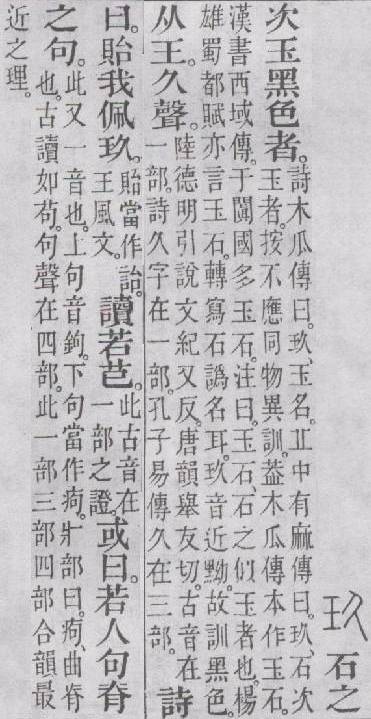 玖 石之
次玉黑色者。詩木瓜傳曰。玖、玉名。丠中有麻傳曰。玖、石次
玉者。按不應同物異訓。葢木瓜傳本作玉石。
漢書西域傳。于闐國多玉石。注曰。玉石、石之似玉者也。楊
雄蜀都賦亦言玉石。轉寫石譌名耳。玖音近黝。故訓黑色。
从王。久聲。陸德明引說文紀又反。唐韻舉友切。古音在
一部。詩久字在一部。孔子易傳久在三部。詩
曰。貽我佩玖。貽當作詒。
王風文。讀若芑。此古音在
一部之證。或曰。若人句脊
之句。此又一音也。上句音鉤。下句當作痀。疒部曰。痀、曲脊
也。古讀如苟。句聲在四部。此一部三部四部合韻最
近之理。